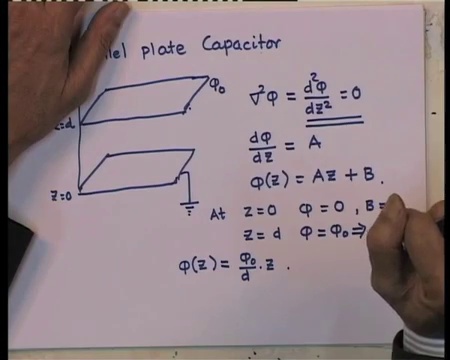 plate Capacitor
φ₀
∇²φ = d²φ/dz² = 0
z=d
dφ/dz = A
φ(z) = Az + B.
z=0
At z=0 φ=0, B=
z=d φ=φ₀ ⇒
φ(z) = φ₀/d · z .